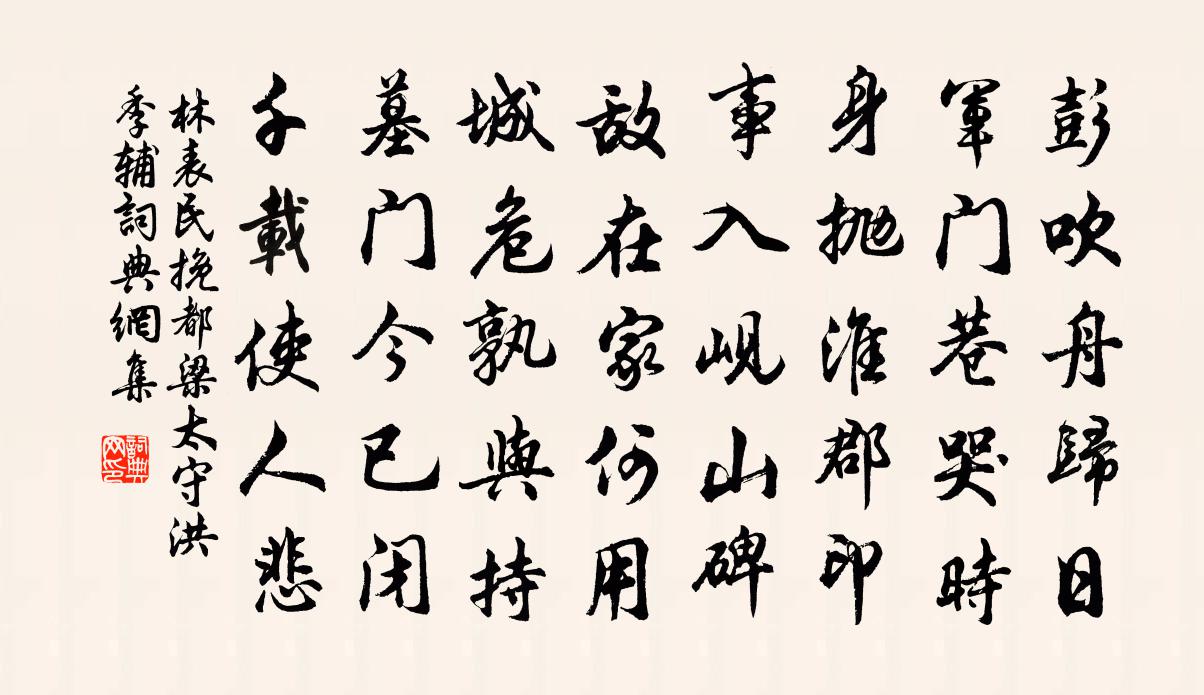 彭吹舟歸日
軍门巷哭時
身抛淮郡印
事入峴山碑
敌在家何用
城危孰與持
墓门今已闭
千載使人悲
林表民挽都梁太守洪
季辅詞典網集
詞典网印